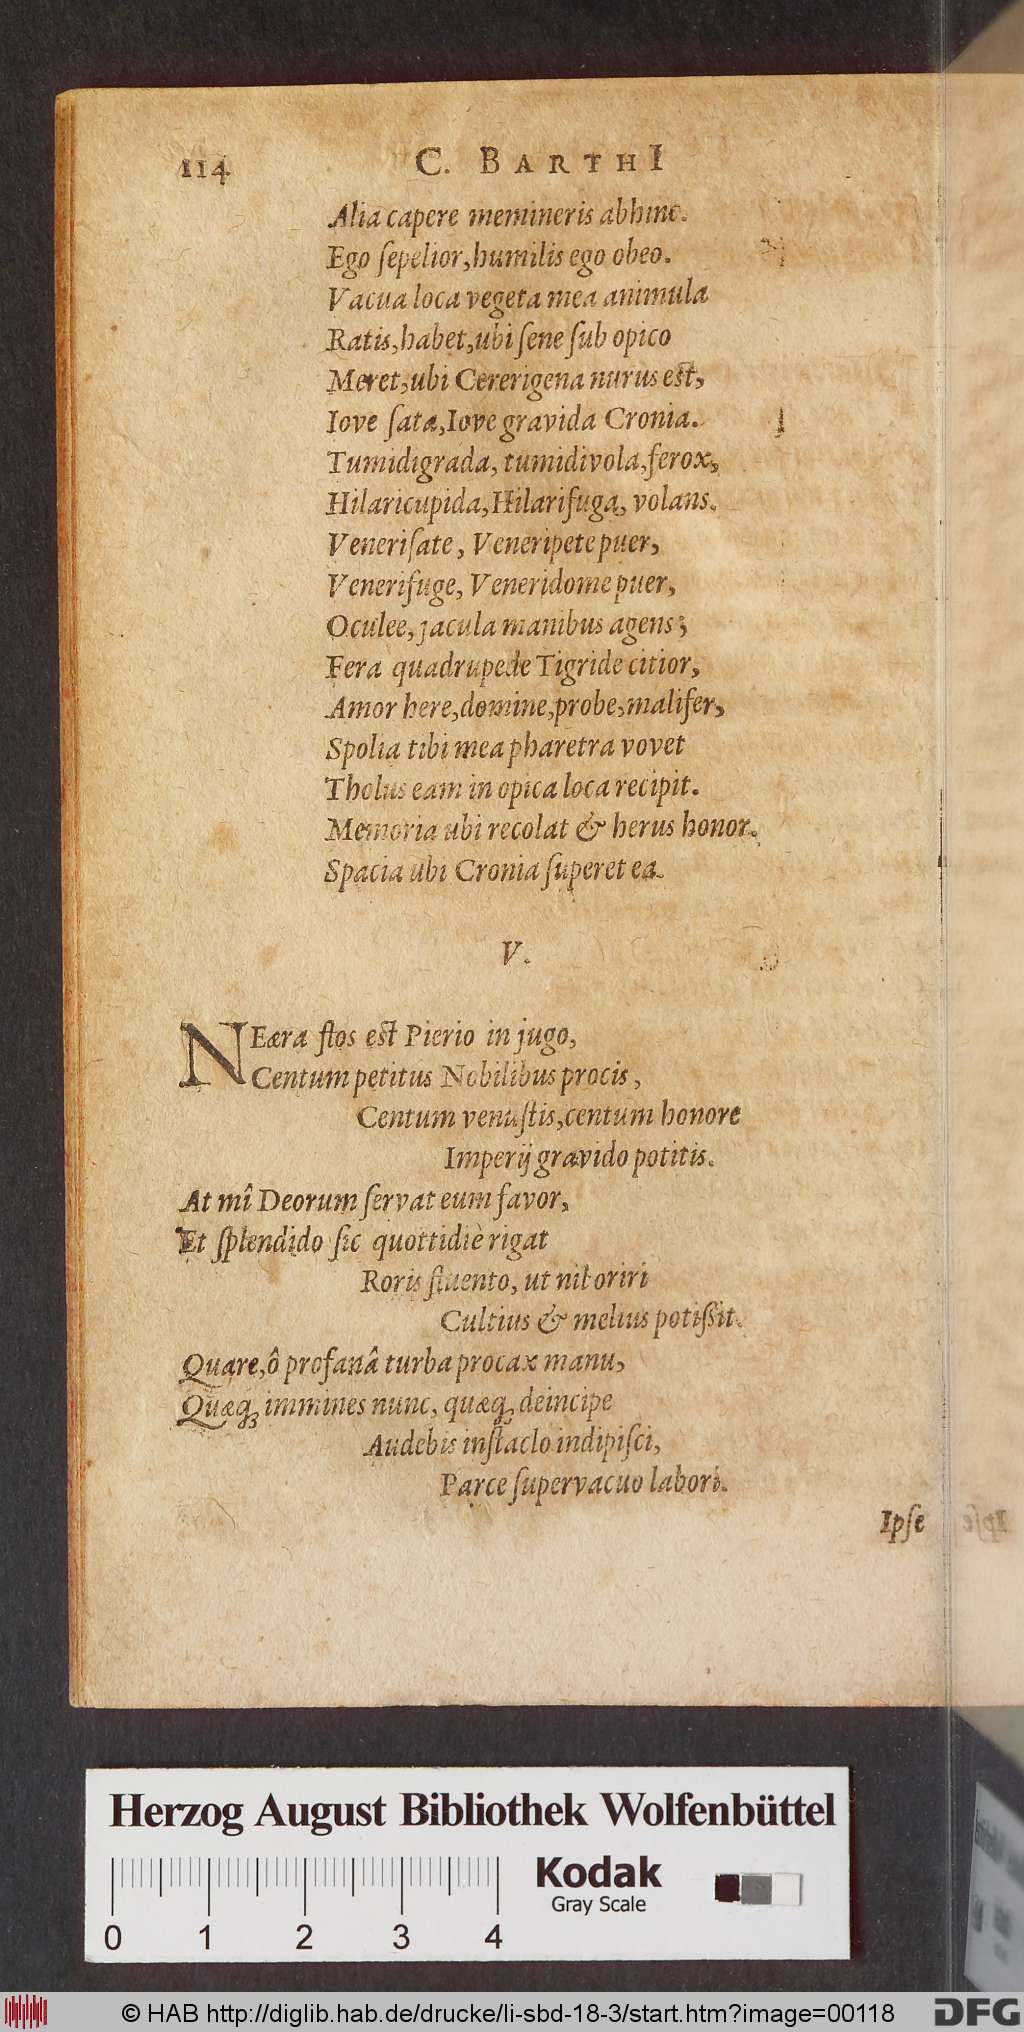 114 C. BARTHI
Alia capere memineris abhinc.
Ego ſepelior, humilis ego obeo.
Vacua loca vegeta mea animula
Ratis, habet, ubi ſene ſub opico
Meret, ubi Cererigena nurus eſt,
Iove ſata, Iove gravida Cronia.
Tumidigrada, tumidivola, ferox,
Hilaricupida, Hilarifuga, volans.
Veneriſate, Veneripete puer,
Venerifuge, Veneridome puer,
Oculee, jacula manibus agens;
Fera quadrupede Tigride citior,
Amor here, domine, probe, malifer,
Spolia tibi mea pharetra vovet
Tholus eam in opica loca recipit.
Memoria ubi recolat & herus honor.
Spacia ubi Cronia ſuperet ea.
V.
NEæra flos eſt Pierio in jugo,
Centum petitus Nobilibus procis,
Centum venuſtis, centum honore
Imperij gravido potitis.
At mî Deorum ſervat eum favor,
Et ſplendido ſic quottidiè rigat
Roris fluento, ut nil oriri
Cultius & melius potiſſit.
Quare, ô profanâ turba procax manu,
Quæq; immines nunc, quæq; deincipe
Audebis inſtaclo indipiſci,
Parce ſupervacuo labori.
Ipſe
Herzog August Bibliothek Wolfenbüttel
Kodak
Gray Scale
0 1 2 3 4
© HAB http://diglib.hab.de/drucke/li-sbd-18-3/start.htm?image=00118
DFG